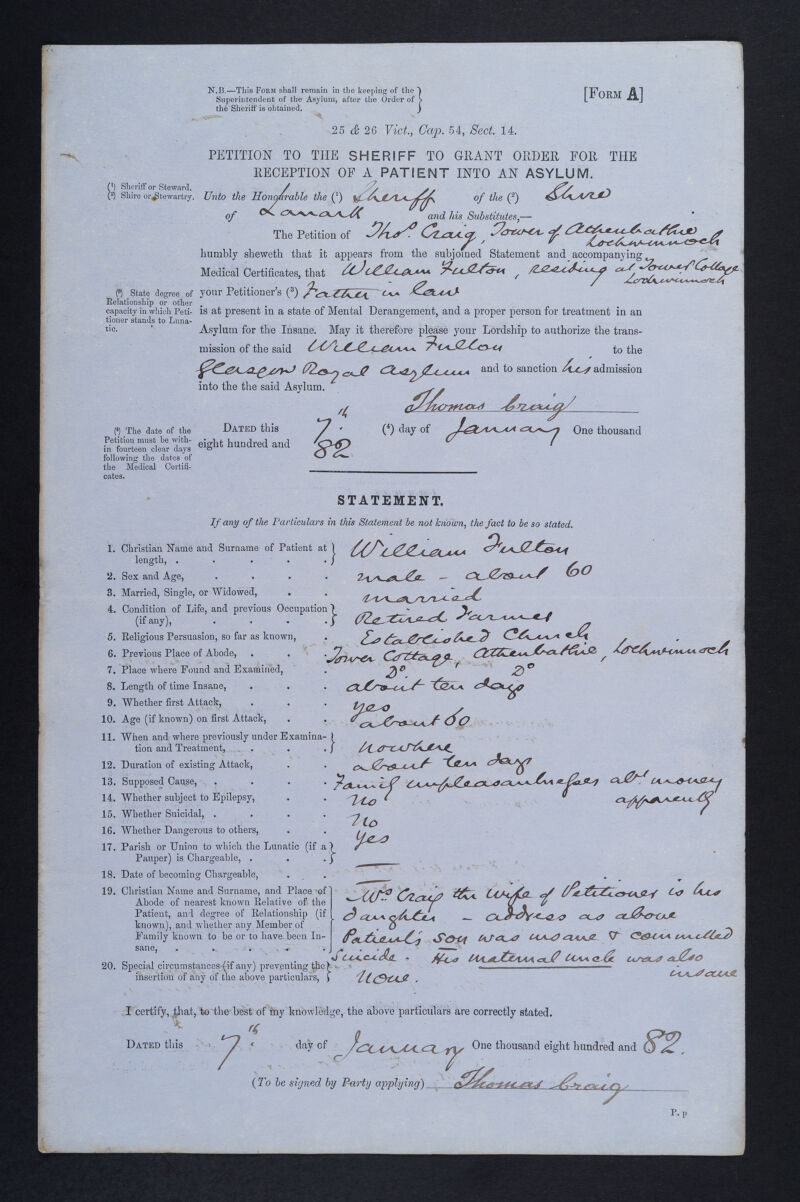 N.B.—This Form shall remain in the keeping of the
Superintendent of the Asylum, after the Order of
the Sheriff is obtained.
[Form A]
25 & 26 Vict., Cap. 54, Sect. 14.
PETITION TO THE SHERIFF TO GRANT ORDER FOR THE
RECEPTION OF A PATIENT INTO AN ASYLUM.
(1) Sheriff or Steward.
(2) Shire or Stewartry.
Unto the Honourable the (1) Sheriff of the (2) Shire
of Lanark and his Substitutes,—
The Petition of Thos. Craig, Tower of Attenbathie
Lochwinnoch
humbly sheweth that it appears from the subjoined Statement and accompanying
Medical Certificates, that William Fulton, residing at Tower Cottage
Lochwinnoch
(3) State degree of
Relationship or other
capacity in which Peti-
tioner stands to Luna-
tic.
your Petitioner's (3) Father in law
is at present in a state of Mental Derangement, and a proper person for treatment in an
Asylum for the Insane. May it therefore please your Lordship to authorize the trans-
mission of the said William Fulton to the
Glasgow Royal Asylum and to sanction his admission
into the the said Asylum.
Thomas Craig
(4) The date of the
Petition must be with-
in fourteen clear days
following the dates of
the Medical Certifi-
cates.
Dated this 7th. (4) day of January One thousand
eight hundred and 82
STATEMENT.
If any of the Particulars in this Statement be not known, the fact to be so stated.
1. Christian Name and Surname of Patient at
length, . . . . . William Fulton
2. Sex and Age, . . . . male - about 60
3. Married, Single, or Widowed, . . married
4. Condition of Life, and previous Occupation
(if any), . . . . Retired Farmer
5. Religious Persuasion, so far as known, . Established Church
6. Previous Place of Abode, . . . Tower Cottage, Attenbathie, Lochwinnoch
7. Place where Found and Examined, . Do Do
8. Length of time Insane, . . . about ten days
9. Whether first Attack, . . . yes
10. Age (if known) on first Attack, . . about 60
11. When and where previously under Examina-
tion and Treatment, . . . Nowhere
12. Duration of existing Attack, . . about ten days
13. Supposed Cause, . . . . Family unpleasantnesses abt money
apparently
14. Whether subject to Epilepsy, . . No
15. Whether Suicidal, . . . . No
16. Whether Dangerous to others, . . Yes
17. Parish or Union to which the Lunatic (if a
Pauper) is Chargeable, . . . —
18. Date of becoming Chargeable, . . —
19. Christian Name and Surname, and Place of
Abode of nearest known Relative of the
Patient, and degree of Relationship (if
known), and whether any Member of
Family known to be or to have been In-
sane, . . . . . .
Mrs. Craig the wife of Petitioner is his
daughter - address as above
Patient's son was insane & committed
Suicide. His maternal uncle was also
insane
20. Special circumstances (if any) preventing the
insertion of any of the above particulars, None.
I certify, that, to the best of my knowledge, the above particulars are correctly stated.
Dated this 7th. day of January One thousand eight hundred and 82.
(To be signed by Party applying) Thomas Craig
P. p